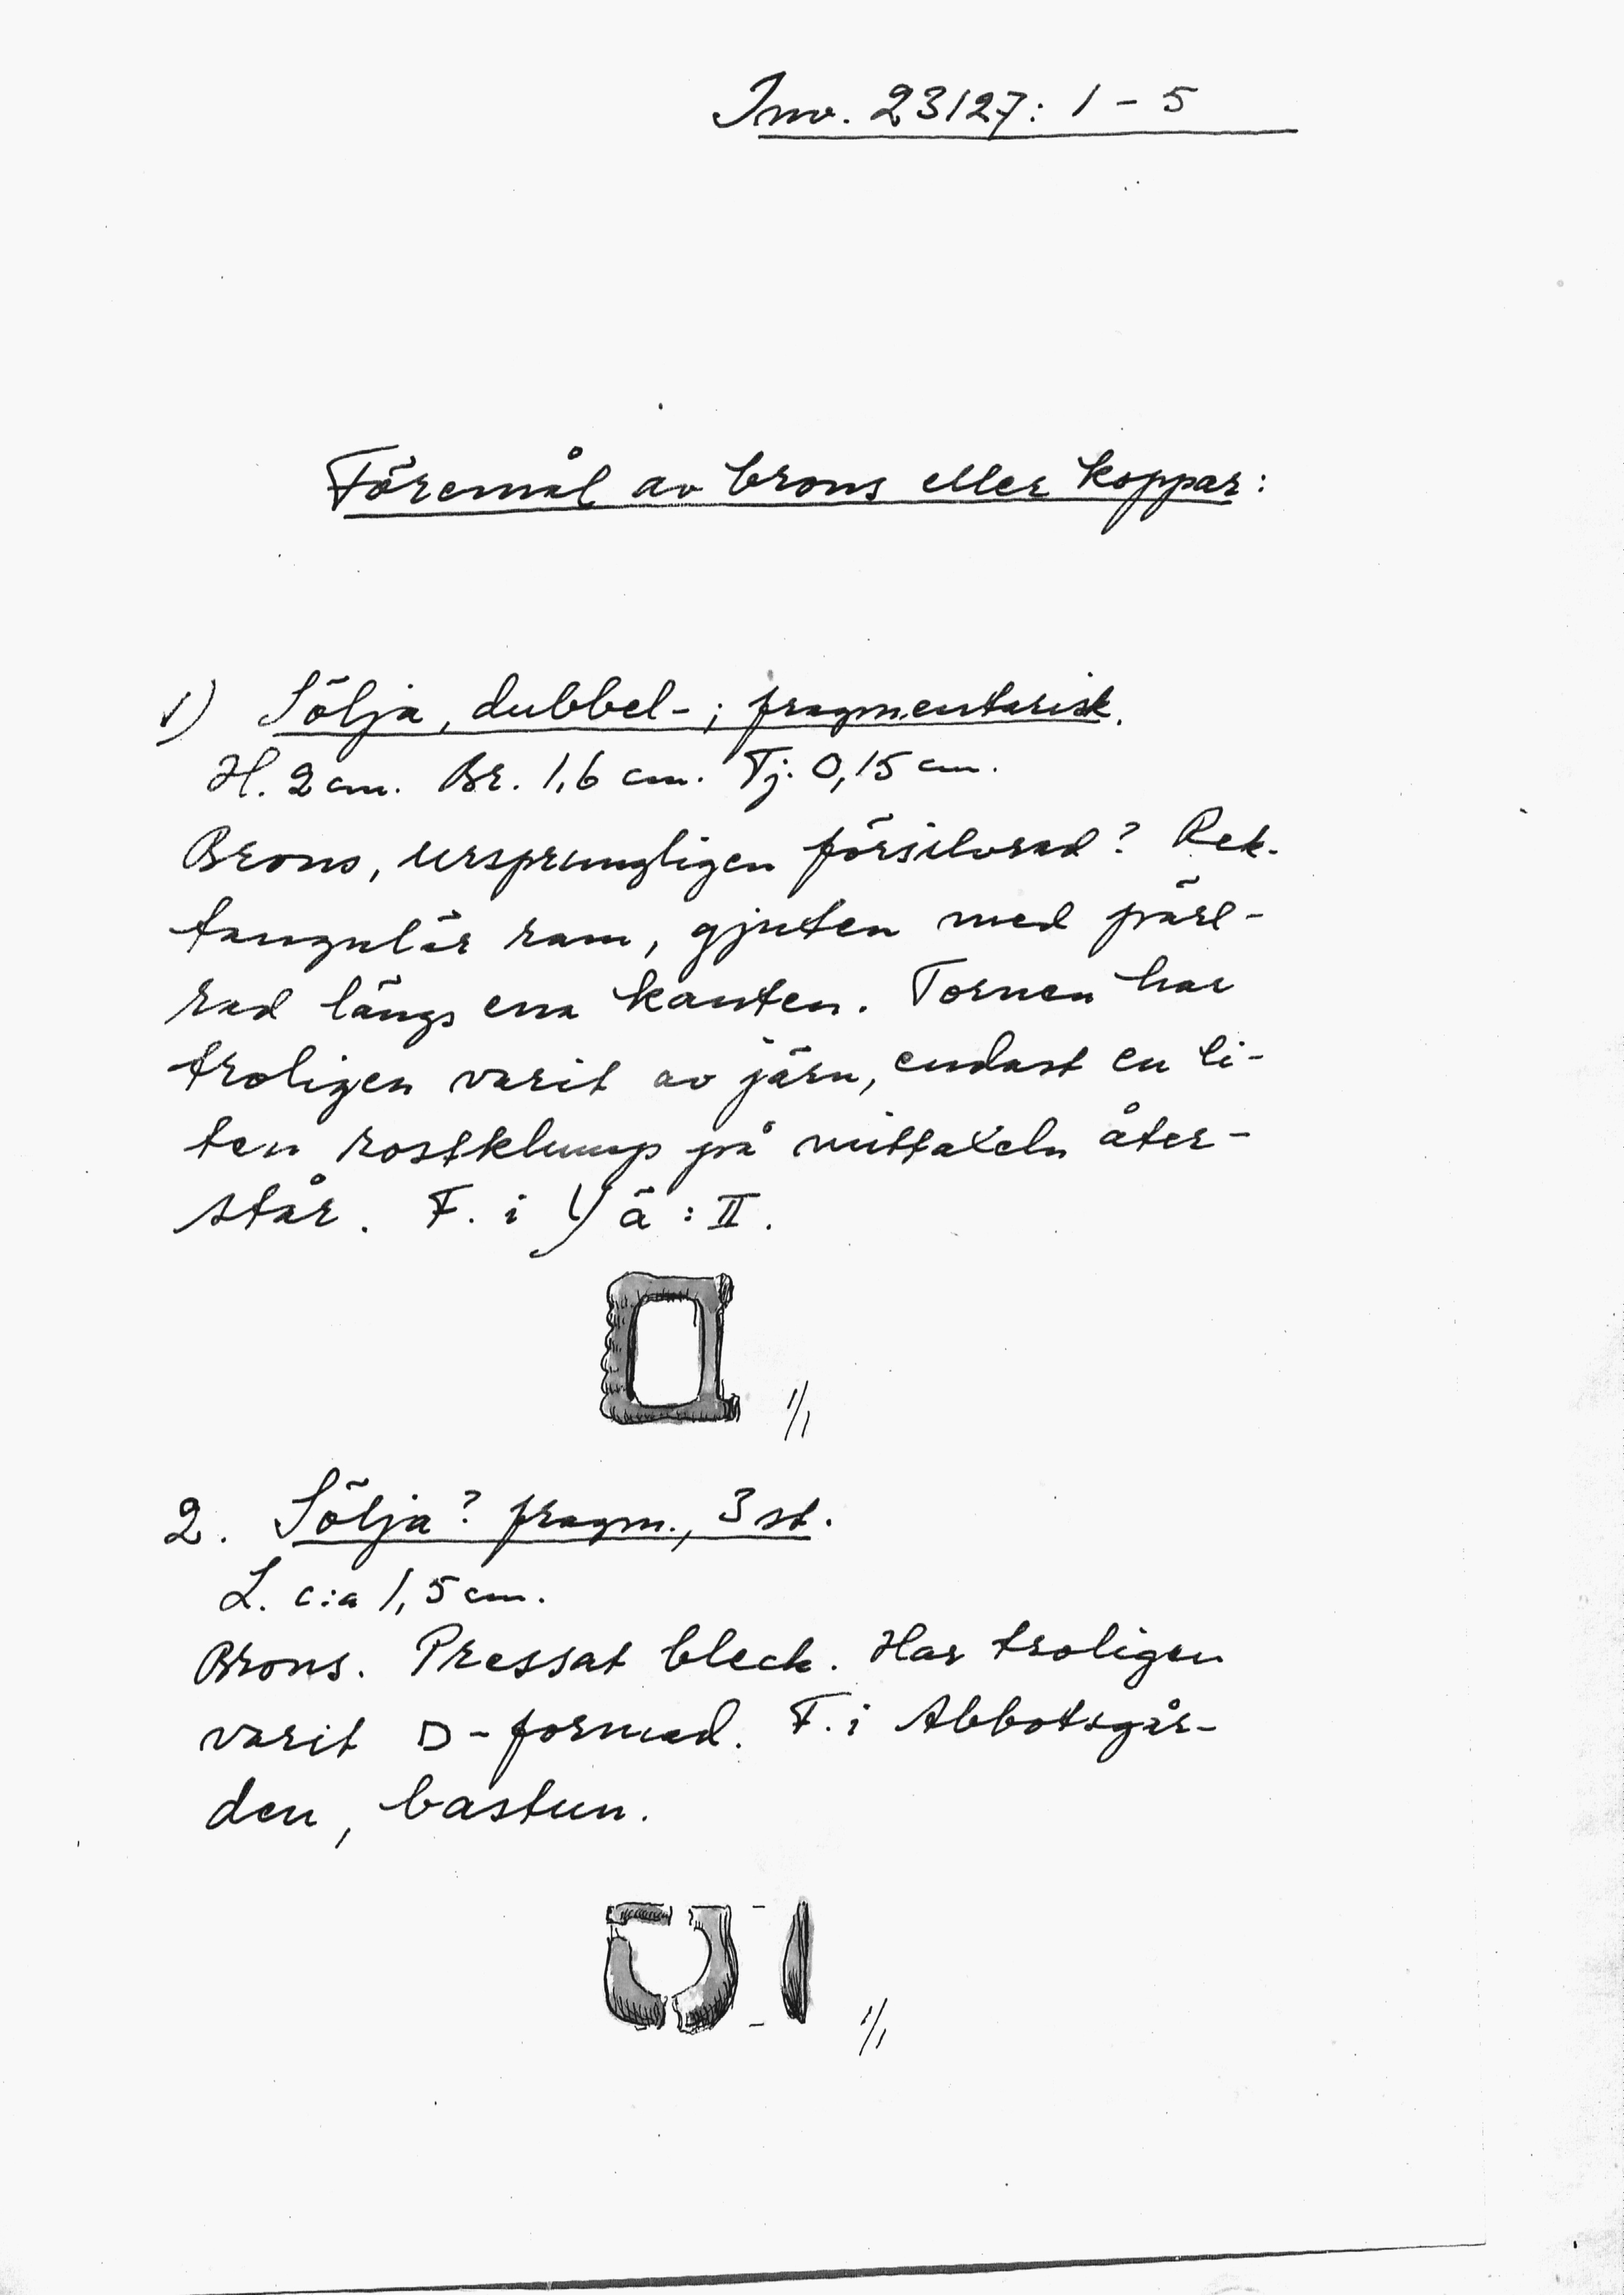 Inv. 23127: 1 - 5
Föremål av brons eller koppar:
1) Sölja, dubbel-; fragmentarisk.
H. 2 cm. Br. 1,6 cm. Tj. 0,15 cm.
Brons, ursprungligen försilvrad? Rek-
tangulär ram, gjuten med pärl-
rad längs ena kanten. Tornen har
troligen varit av järn, endast en li-
ten rostklump på mittaxeln åter-
står. F. i Y ä : II.
1/1
2. Sölja? fragm., 3 st.
L. c:a 1,5 cm.
Brons. Pressat bleck. Har troligen
varit D-formad. F. i Abbotsgår-
den, bastun.
1/1